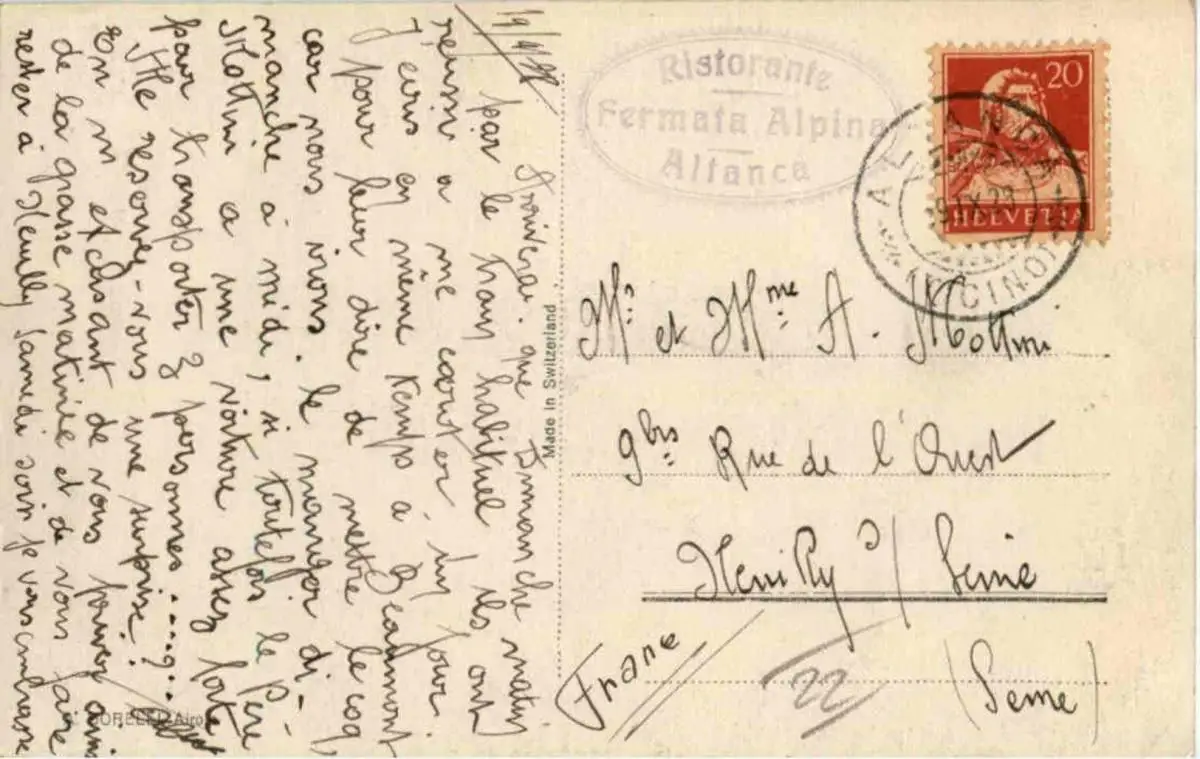 arriverai que Dimanche matin
par le train habituel Ils ont
réussi à me un jour.
J'écris en même temps à Beaumont
pour leur dire de mettre le coq
car nous irons le manger di-
manche à midi, si toutefois le Père
Mottini a une voiture assez forte
pour transporter 3 personnes .....?..
Me réservez-vous une surprise?
En m'excusant de vous ainsi
de la grasse matinée et de vous faire
rester à Neuilly Samedi soir je vous embrasse
Made in Switzerland
Ristorante
Fermata Alpina
Altanca
20
HELVETIA
ALTANCA
(TICINO)
Mr et Mme A. Mottini
9bis Rue de l'Ouest
Neuilly s/ Seine
(Seine)
France
22
BORELLI, Airolo